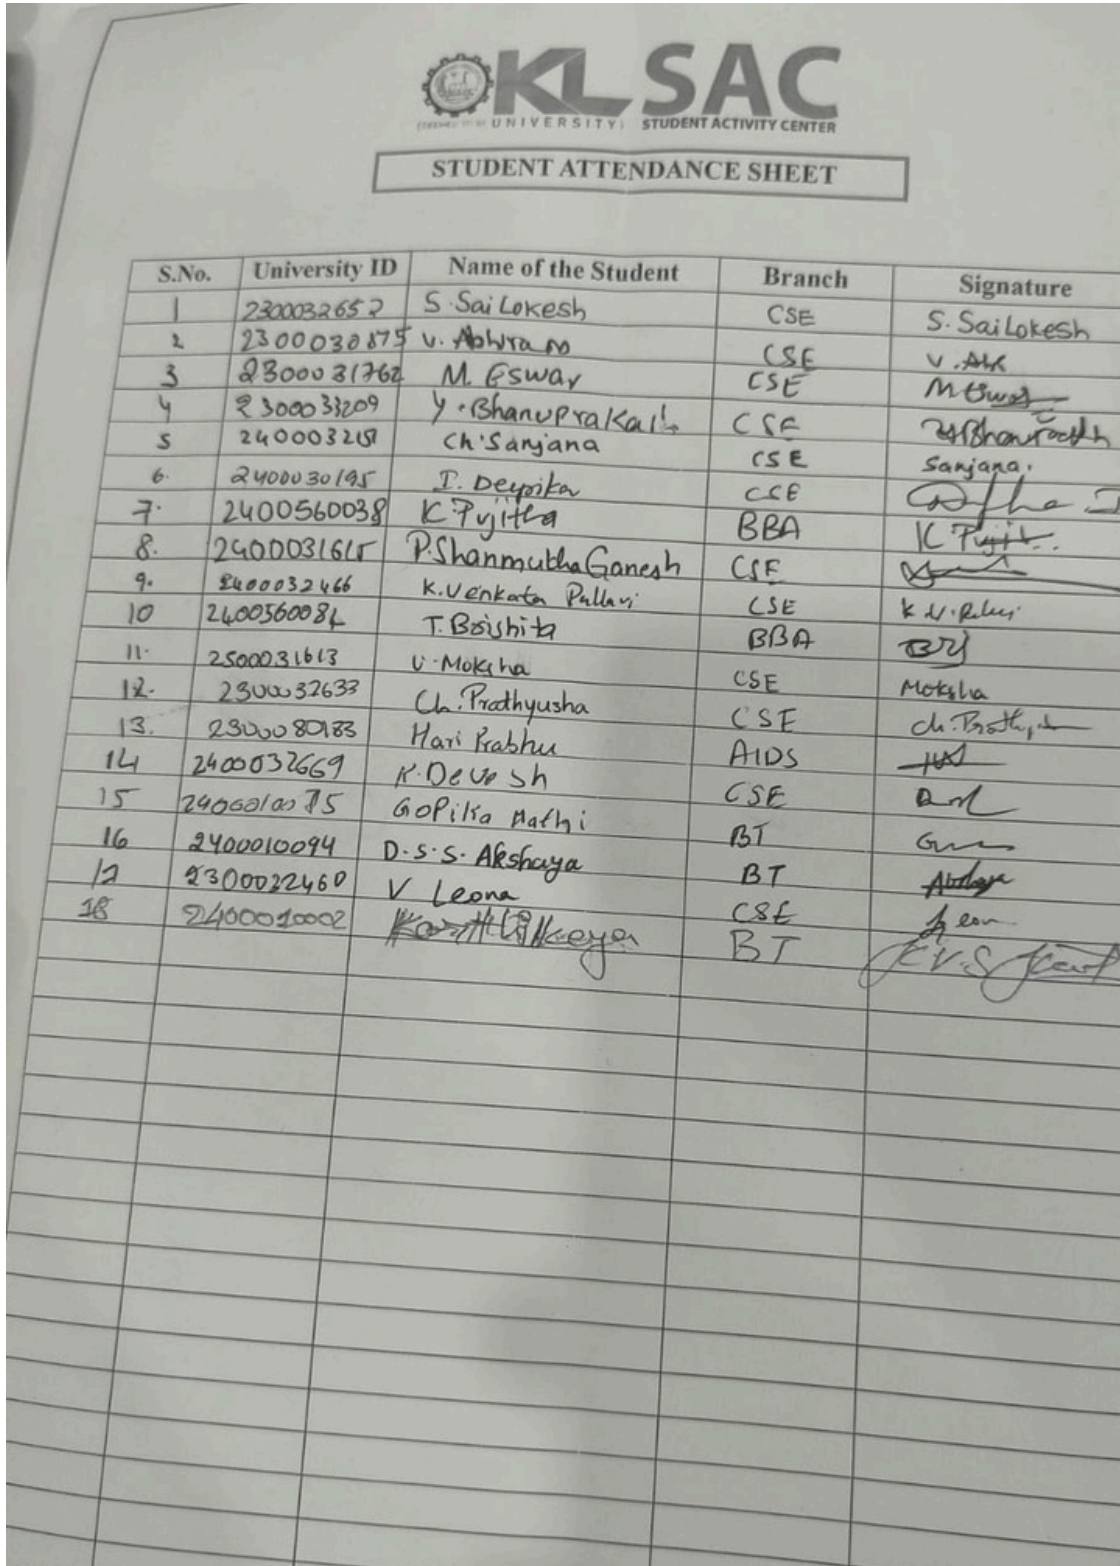 KL SAC
UNIVERSITY) STUDENT ACTIVITY CENTER
STUDENT ATTENDANCE SHEET
S.No. University ID Name of the Student Branch Signature
1 2300032652 S. Sai Lokesh CSE S. Sai Lokesh
2 2300030875 V. Abhiram CSE V.
3 2300031762 M. Eswar CSE
4 2300033209 Y. Bhanuprakash CSE
5 Ch. Sanjana CSE Sanjana.
6. 2400030195 I. Deepika CSE
7. 2400560038 K Pujitha BBA K
8. 2400031615 P. Shanmukha Ganesh CSE
9. 2400032466 K. Venkata Pallavi CSE
10 T. Boishita BBA
11. 2500031613 V. Moksha CSE Moksha
12. 2300032633 Ch. Prathyusha CSE
13. 2300080183 Hari Prabhu AIDS
14 2400032669 K. Devesh CSE
15 Gopika BT
16 2400010094 D.S.S. Akshaya BT
17 2300022460 V Leona CSE
18 2400010002 BT